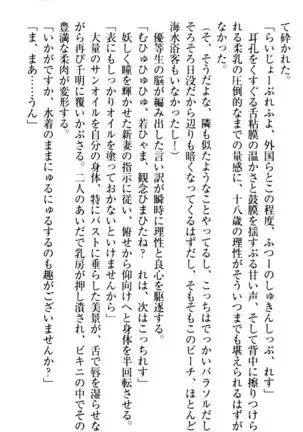 て砕かれた。
「らいじょーぶれふよ、外国らとこの程度、ふつーのしゅきんしっぷ、れす」
耳孔をくすぐる舌粘膜の温かさと鼓膜を揺すぶる甘い声、そして背中に擦りつけら
れる柔乳の圧倒的なまでの量感に、十八歳の理性がそういつまでも堪えられるはずが
なかった。
（そ、そうだよな、隣も似たようなことやってるし、こっちはでっかいパラソルだし
そろそろ日没だから辺りも暗くなってくるはずだし、そもそもこのビーチ、ほとんど
海水浴客もいなかったし！）
優等生の脳が編み出した言い訳が瞬く間に理性と良心を駆逐する。
「むひゅひゅひゅ、若ひゃま、観念ひまひたね？　れは、次はこっちれす」
妖しく瞳を輝かせた新妻の指示に従い、俯せから仰向けへと身体を半回転させる。
「表にもしっかりオイルを塗っておかないといけませんから」
大量のサンオイルを自分の身体、特にバストに垂らした美景が、舌で唇を湿らせな
がら再び千明に覆いかぶさる。二人のあいだで乳房が押し潰され、ビキニの中でその
豊満な柔肉が変形する。
「いかがですか、水着のままにゅるにゅるするのも趣がございませんか？」
「ま、まあ……うん」